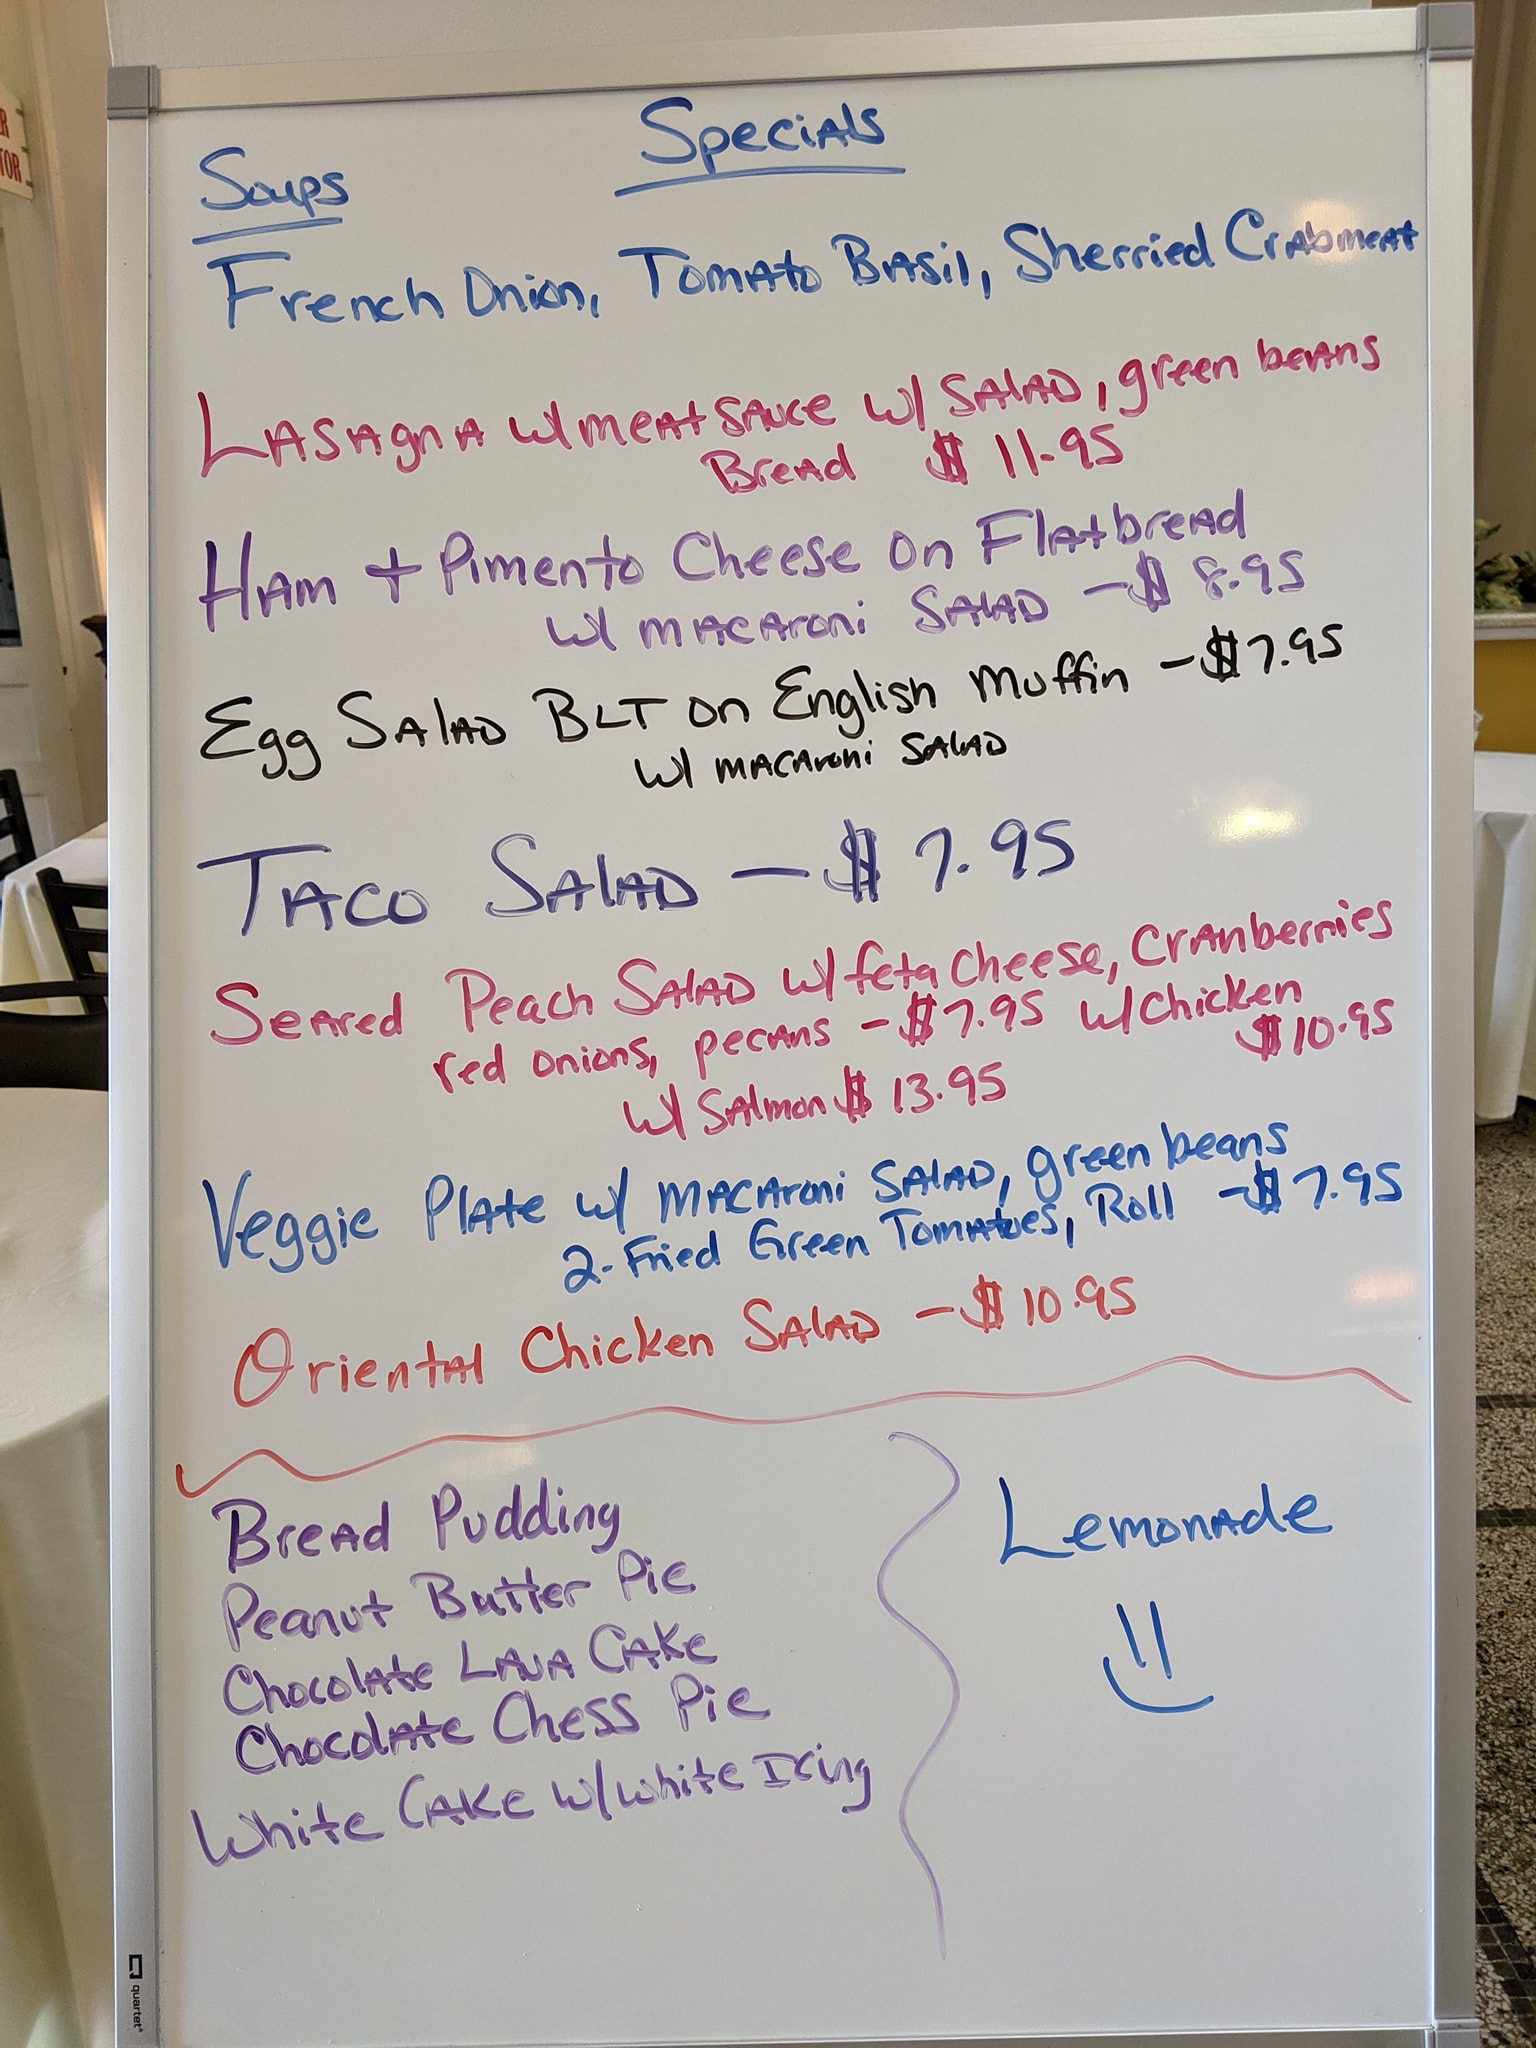 Specials
Soups
French Onion, Tomato Basil, Sherried Crabmeat
Lasagna w/ meat sauce w/ Salad, green beans
Bread $ 11.95
Ham + Pimento Cheese on Flatbread
w/ macaroni Salad - $ 8.95
Egg Salad BLT on English Muffin - $7.95
w/ macaroni Salad
Taco Salad - $ 7.95
Seared Peach Salad w/ feta cheese, Cranberries
red onions, pecans - $7.95 w/ Chicken
$10.95
w/ Salmon $ 13.95
Veggie Plate w/ macaroni Salad, green beans
2- Fried Green Tomatoes, Roll - $7.95
Oriental Chicken Salad - $10.95
Bread Pudding
Peanut Butter Pie
Chocolate Lava Cake
Chocolate Chess Pie
White Cake w/ White Icing
Lemonade
quartet
TOR